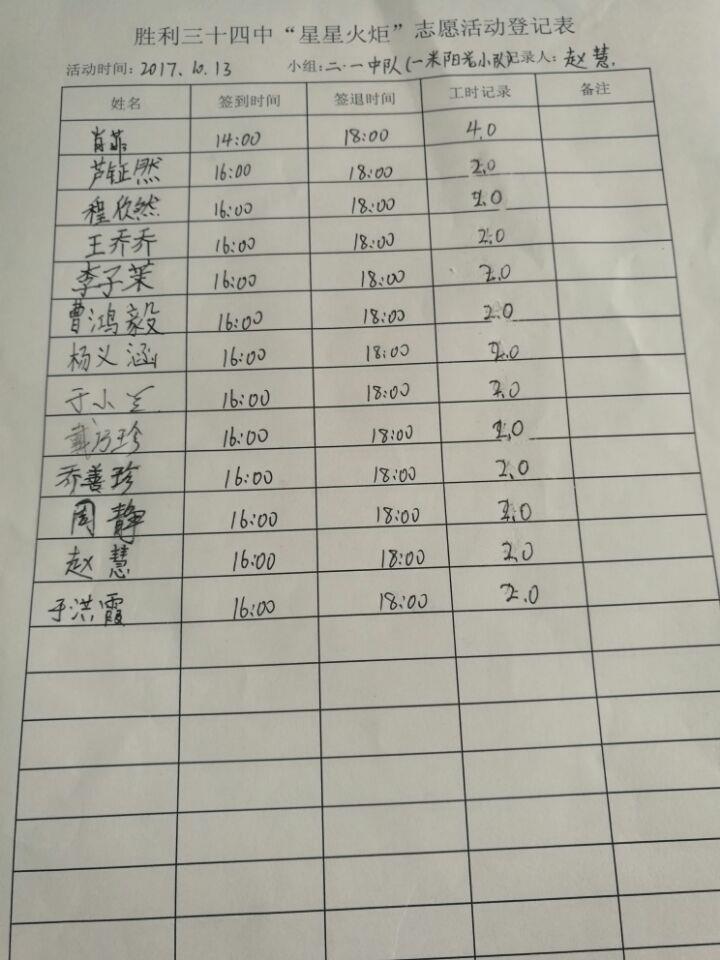 胜利三十四中“星星火炬”志愿活动登记表
活动时间：2017.10.13 小组：二·一中队(一米阳光小队)记录人：赵慧.
姓名 签到时间 签退时间 工时记录 备注
肖菲 14:00 18:00 4.0
芦钲然 16:00 18:00 2.0
程欣然 16:00 18:00 2.0
王乔乔 16:00 18:00 2.0
李子茉 16:00 18:00 2.0
曹鸿毅 16:00 18:00 2.0
杨义涵 16:00 18:00 2.0
于小兰 16:00 18:00 2.0
戴乃珍 16:00 18:00 2.0
乔善珍 16:00 18:00 2.0
周静 16:00 18:00 2.0
赵慧 16:00 18:00 2.0
于洪霞 16:00 18:00 2.0